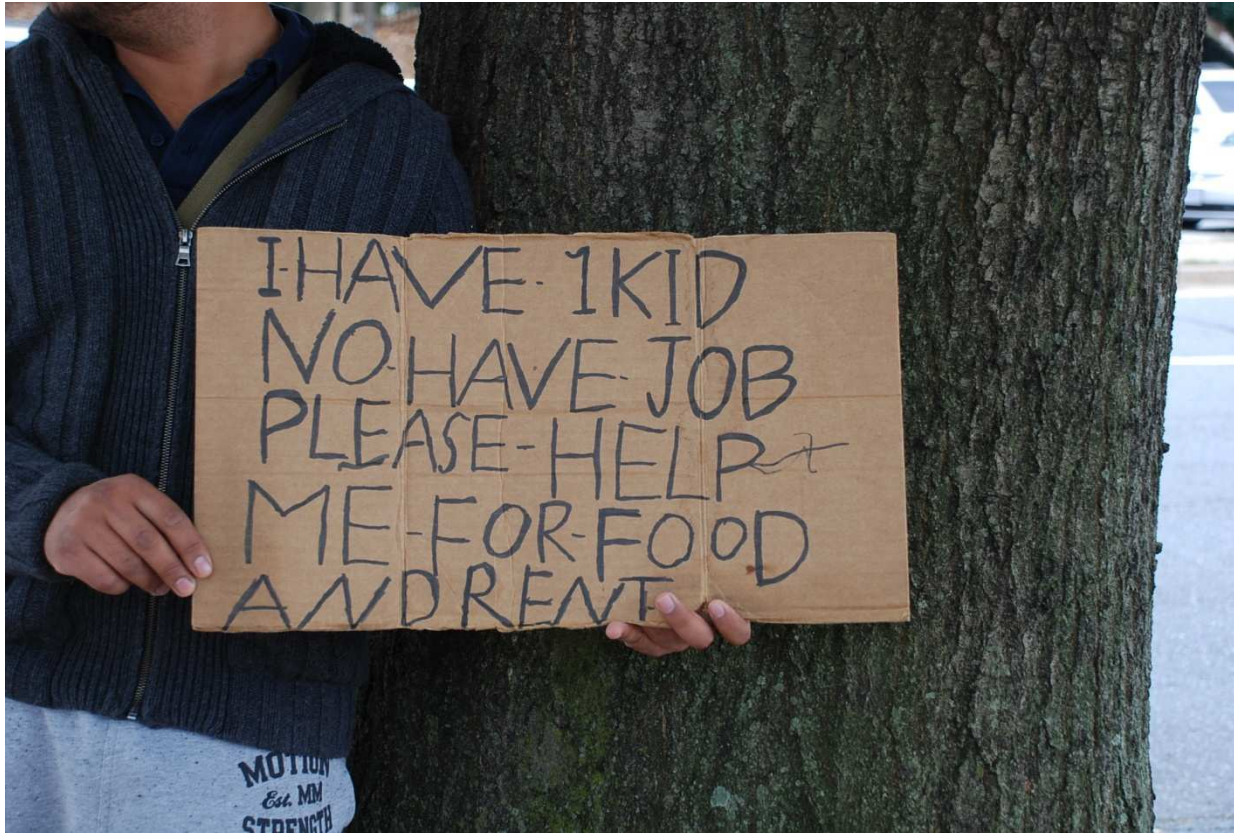 I-HAVE-1KID
NO-HAVE-JOB
PLEASE-HELP
ME-FOR-FOOD
AND RENT
MOTION
Est. MM
STRENGTH